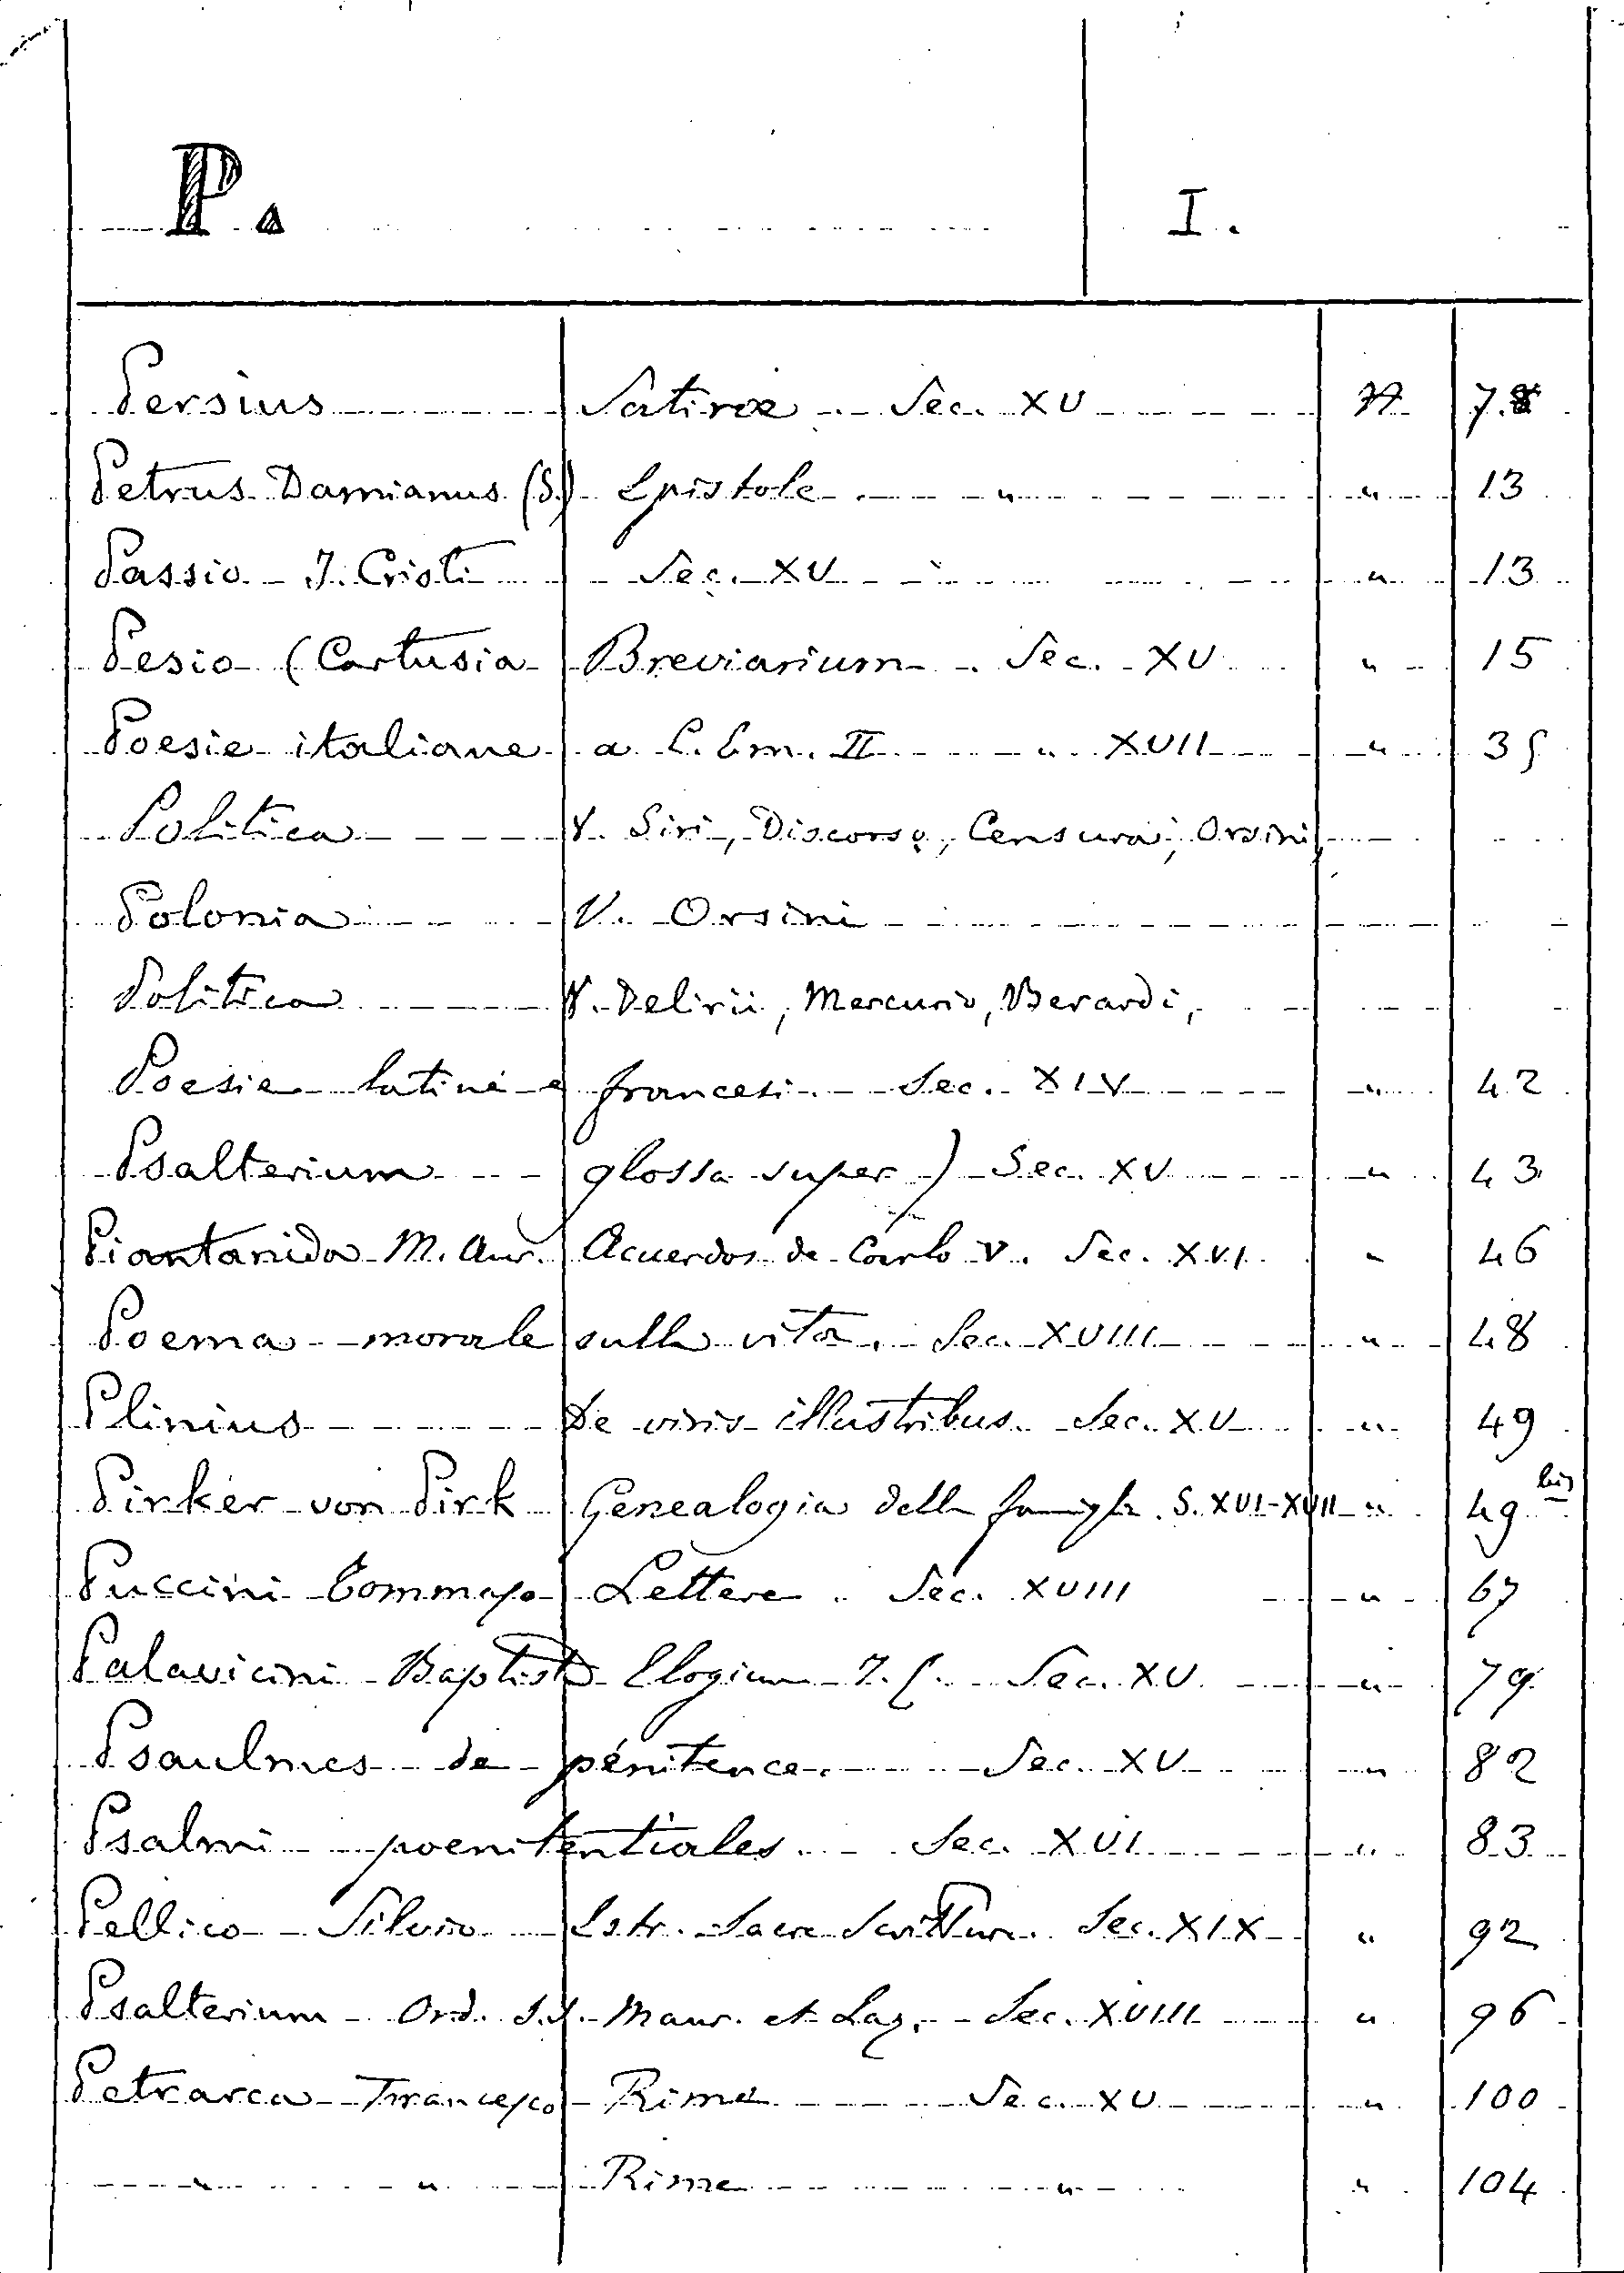 P. I.
Persius Satiræ Sec. XV 7.8
Petrus Damianus (S.) Epistole " " 13
Passio J. Cristi Sec. XV " 13
Pesio (Cartusia Breviarium Sec. XV " 15
Poesie italiane a C. Em. II " XVII " 35
Politica V. Siri, Discorso, Censura, Orsini,
Polonia V. Orsini
Politica V. Delirii, Mercurio, Berardi,
Poesie latine e francesi Sec. XIV " 42
Psalterium glossa super) Sec. XV " 43
Piantanida M. Aur. Acuerdos de Carlo V. Sec. XVI " 46
Poema morale sulla vita. Sec. XVIII " 48
Plinius De viris illustribus Sec. XV " 49
Pirker von Pirk Genealogia della famiglia S. XVI-XVII " 49 bis
Puccini Tommaso Lettere Sec. XVIII " 67
Palavicini Baptista Elogium J. C. Sec. XV " 79
Psaulmes de pénitence Sec. XV " 82
Psalmi poenitentiales Sec. XVI " 83
Pellico Silvio Estr. Sacre Scritture Sec. XIX " 92
Psalterium Ord. S.S. Maur. et Laz. Sec. XVIII " 96
Petrarca Francesco Rime Sec. XV " 100
" " Rime " " 104